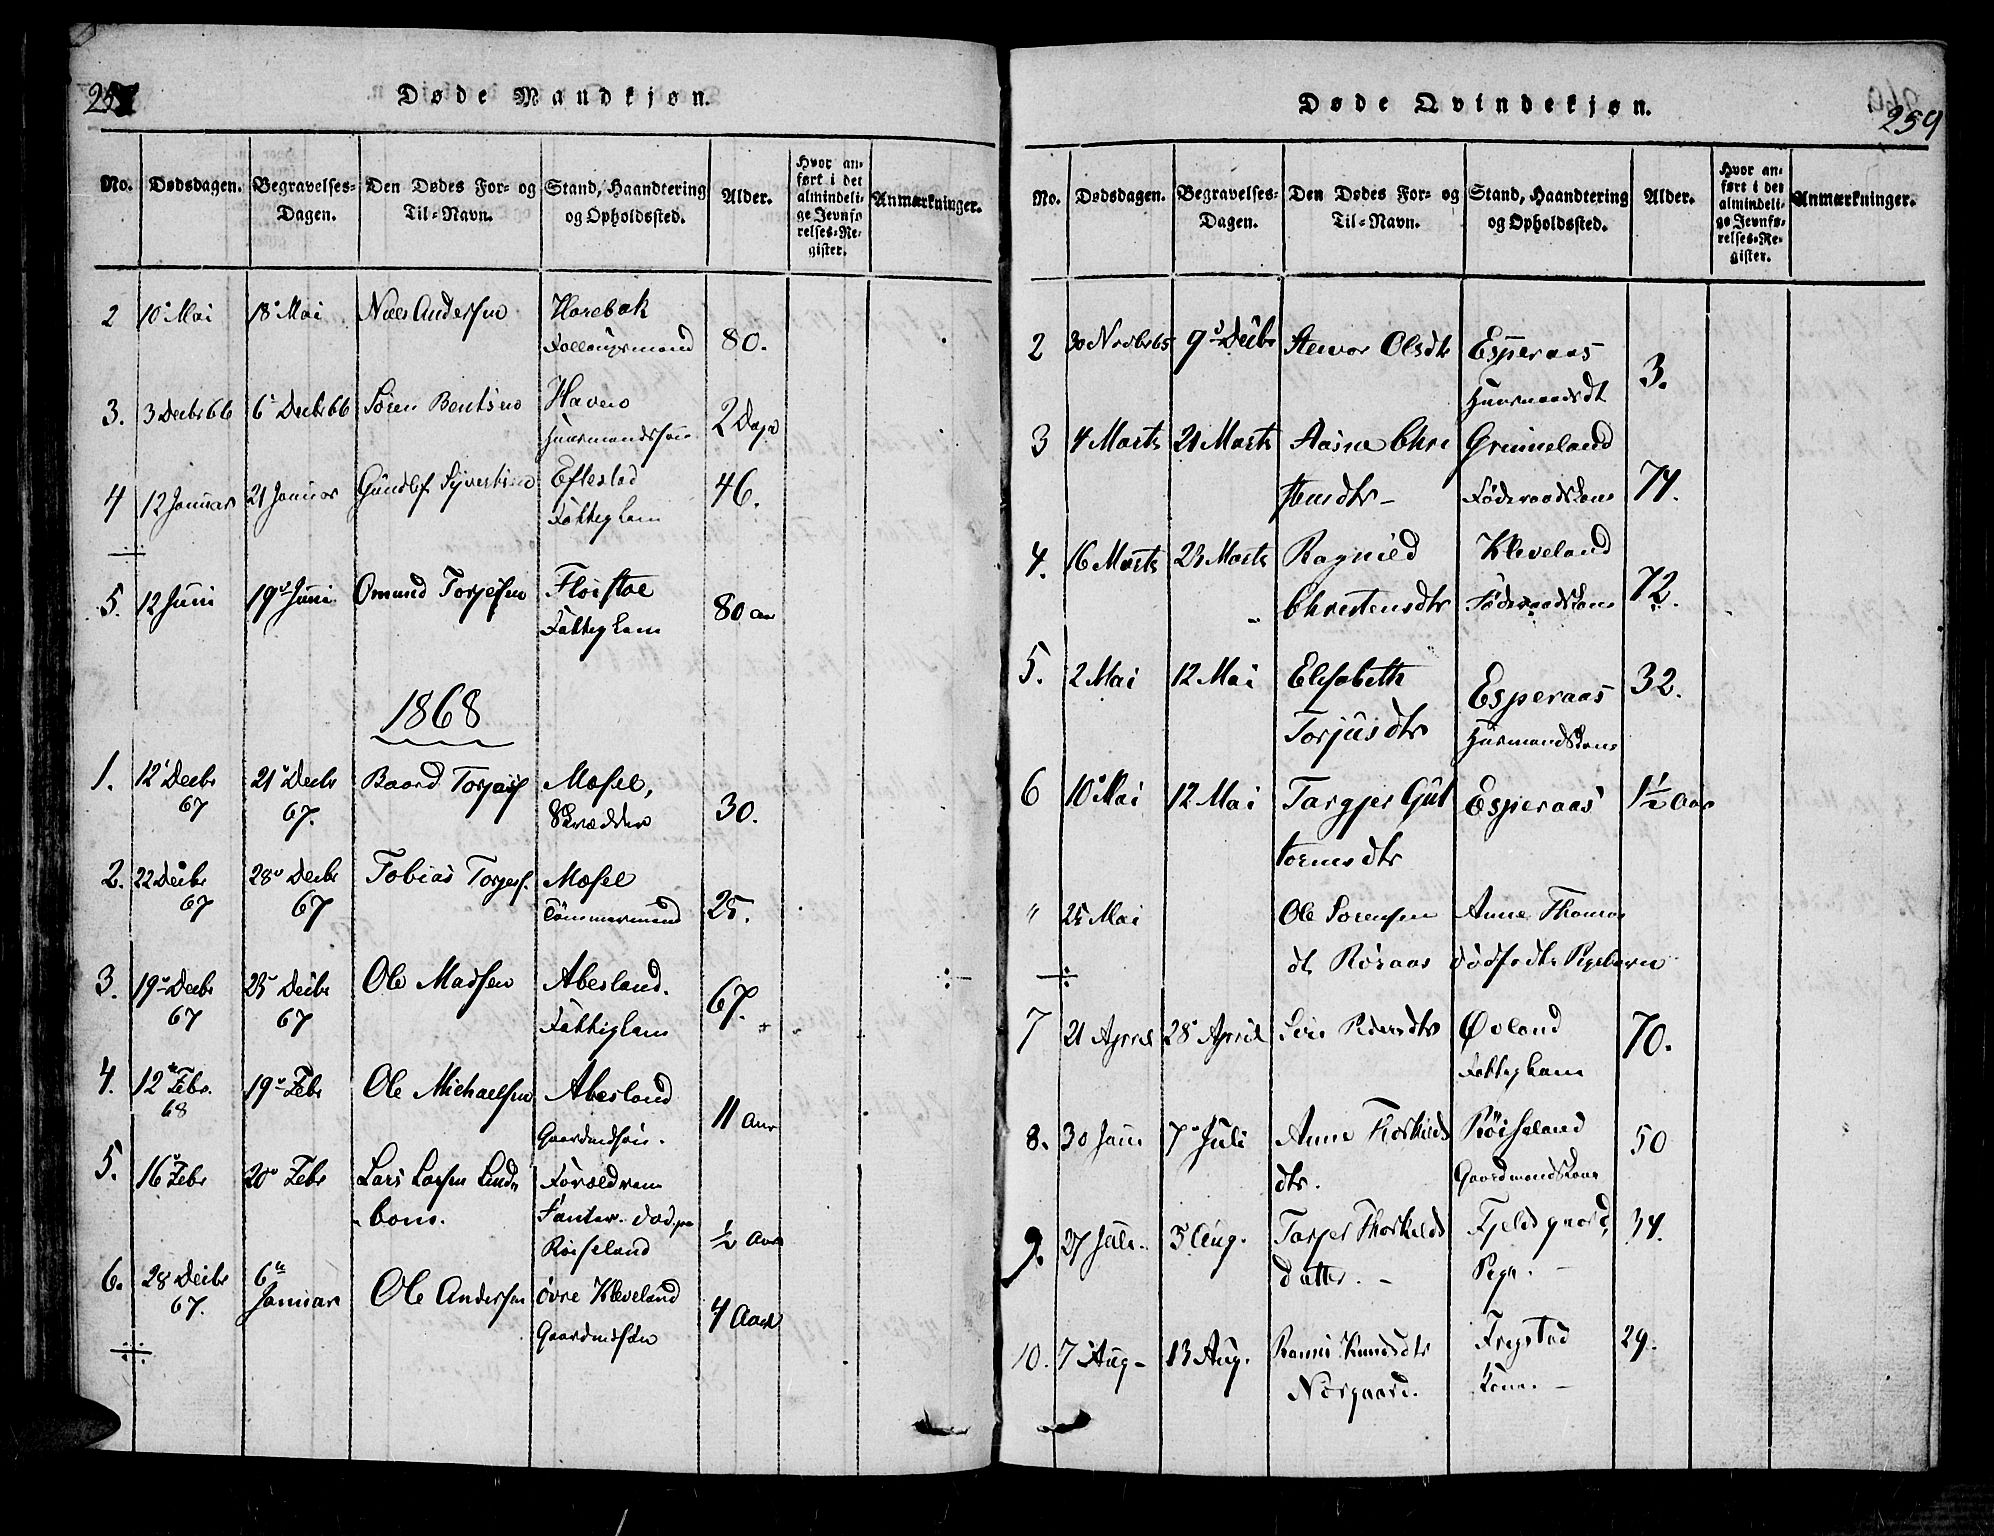 Døde Mandkjøn.
No. Dødsdagen. Begravelses-Dagen. Den Dødes For- og Til-Navn. Stand, Haandtering og Opholdssted. Alder. Hvor anført i det almindelige Jevnførelses-Register. Anmærkninger.
2 10 Mai 18 Mai Niels Andersen Horebak 80.
3. 3 Decbr 66 6 Decbr 66 Sören Bentsen Haven 2 Dage
Huusmandssön
4 12 Januar 21 Januar Gundlef Syvertsen Eftestad 46.
Fattiglem
5. 12 Juni 19 Juni Omund Torjesen Floistoe 80 aar
Fattiglem
1868
1. 12 Decbr 67 21 Decbr 67. Baard Torjesf Mosel, 30.
Skrædder
2. 22 Decbr 67 28 Decbr 67 Tobias Torjesf. Mosel 25.
Tømmermand
3. 19 Decbr 67 25 Decbr 67 Ole Madsen Abesland. 67.
Fattiglem
4. 12 Febr. 68 19 Febr Ole Michaelsen Abesland 11 Aar
Gaardmdsön.
5. 16 Febr 20 Febr Lars Larsen Lind-
bom. Forældrene
Fanter. död paa ½ Aar
Röiseland
6. 28 Decbr 67. 6 Januar Ole Andersen övre Kleveland 4 Aar
Gaardmdsön
Døde Qvindekjøn.
259
No. Dødsdagen. Begravelses-Dagen. Den Dødes For- og Til-Navn. Stand, Haandtering og Opholdssted. Alder. Hvor anført i det almindelige Jevnførelses-Register. Anmærkninger.
2 30 Novbr 65 9 Decbr Olsdtr Esperaas 3.
Huusmandsdt
3 4 Marts 21 Marts Aasne Chri Grimeland 74.
stensdtr - Föderaadskone
4. 16 Marts 23 Marts Ragnild Kleveland 72.
Christensdtr Föderaadskone
5. 2 Mai 12 Mai Elisabeth 32.
Torjusdtr Esperaas
Huusmandskone
6 10 Mai 12 Mai Targjer Gut Esperaas 1½ Aar
tormsdtr
" 25 Mai Ole Sorensen Anne Thomas
dt Rosaas dödfödte Pigebarn
7 21 April 28 April Siri Pedersdtr Øvland 70.
Fattiglem
8. 30 Juni 7 Juli Anne Thorkilds Röiseland 50
dtr. Gaardmandskone
9. 27 Juli 3 Aug. Tarjer Thorkilds Fjeldsgaard, 34.
datter. - Pige. -
10. 7 Aug- 13 Aug. Ranni Knudsdtr Fregstad 29.
Norgaard. Kone. -